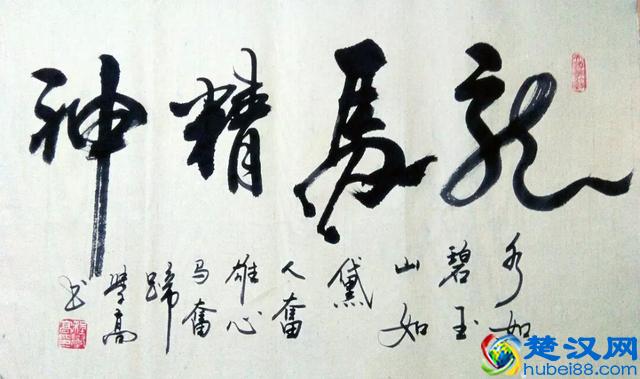 龍馬精神
水如
碧玉
山如
黛
人奋
雄心
马奋
蹄
学高
书
楚汉网
hubei88.com